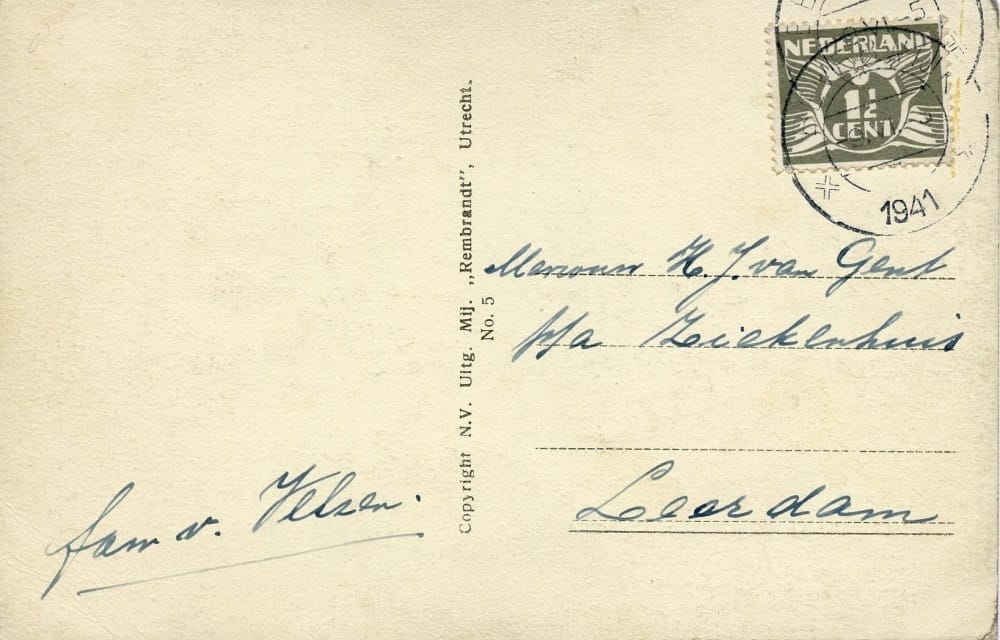 NEDERLAND
1½
CENT
1941
Copyright N.V. Uitg. Mij. „Rembrandt", Utrecht.
No. 5
Mevrouw H. J. van Gent
p/a Ziekenhuis
Leerdam
fam v. Velsen.